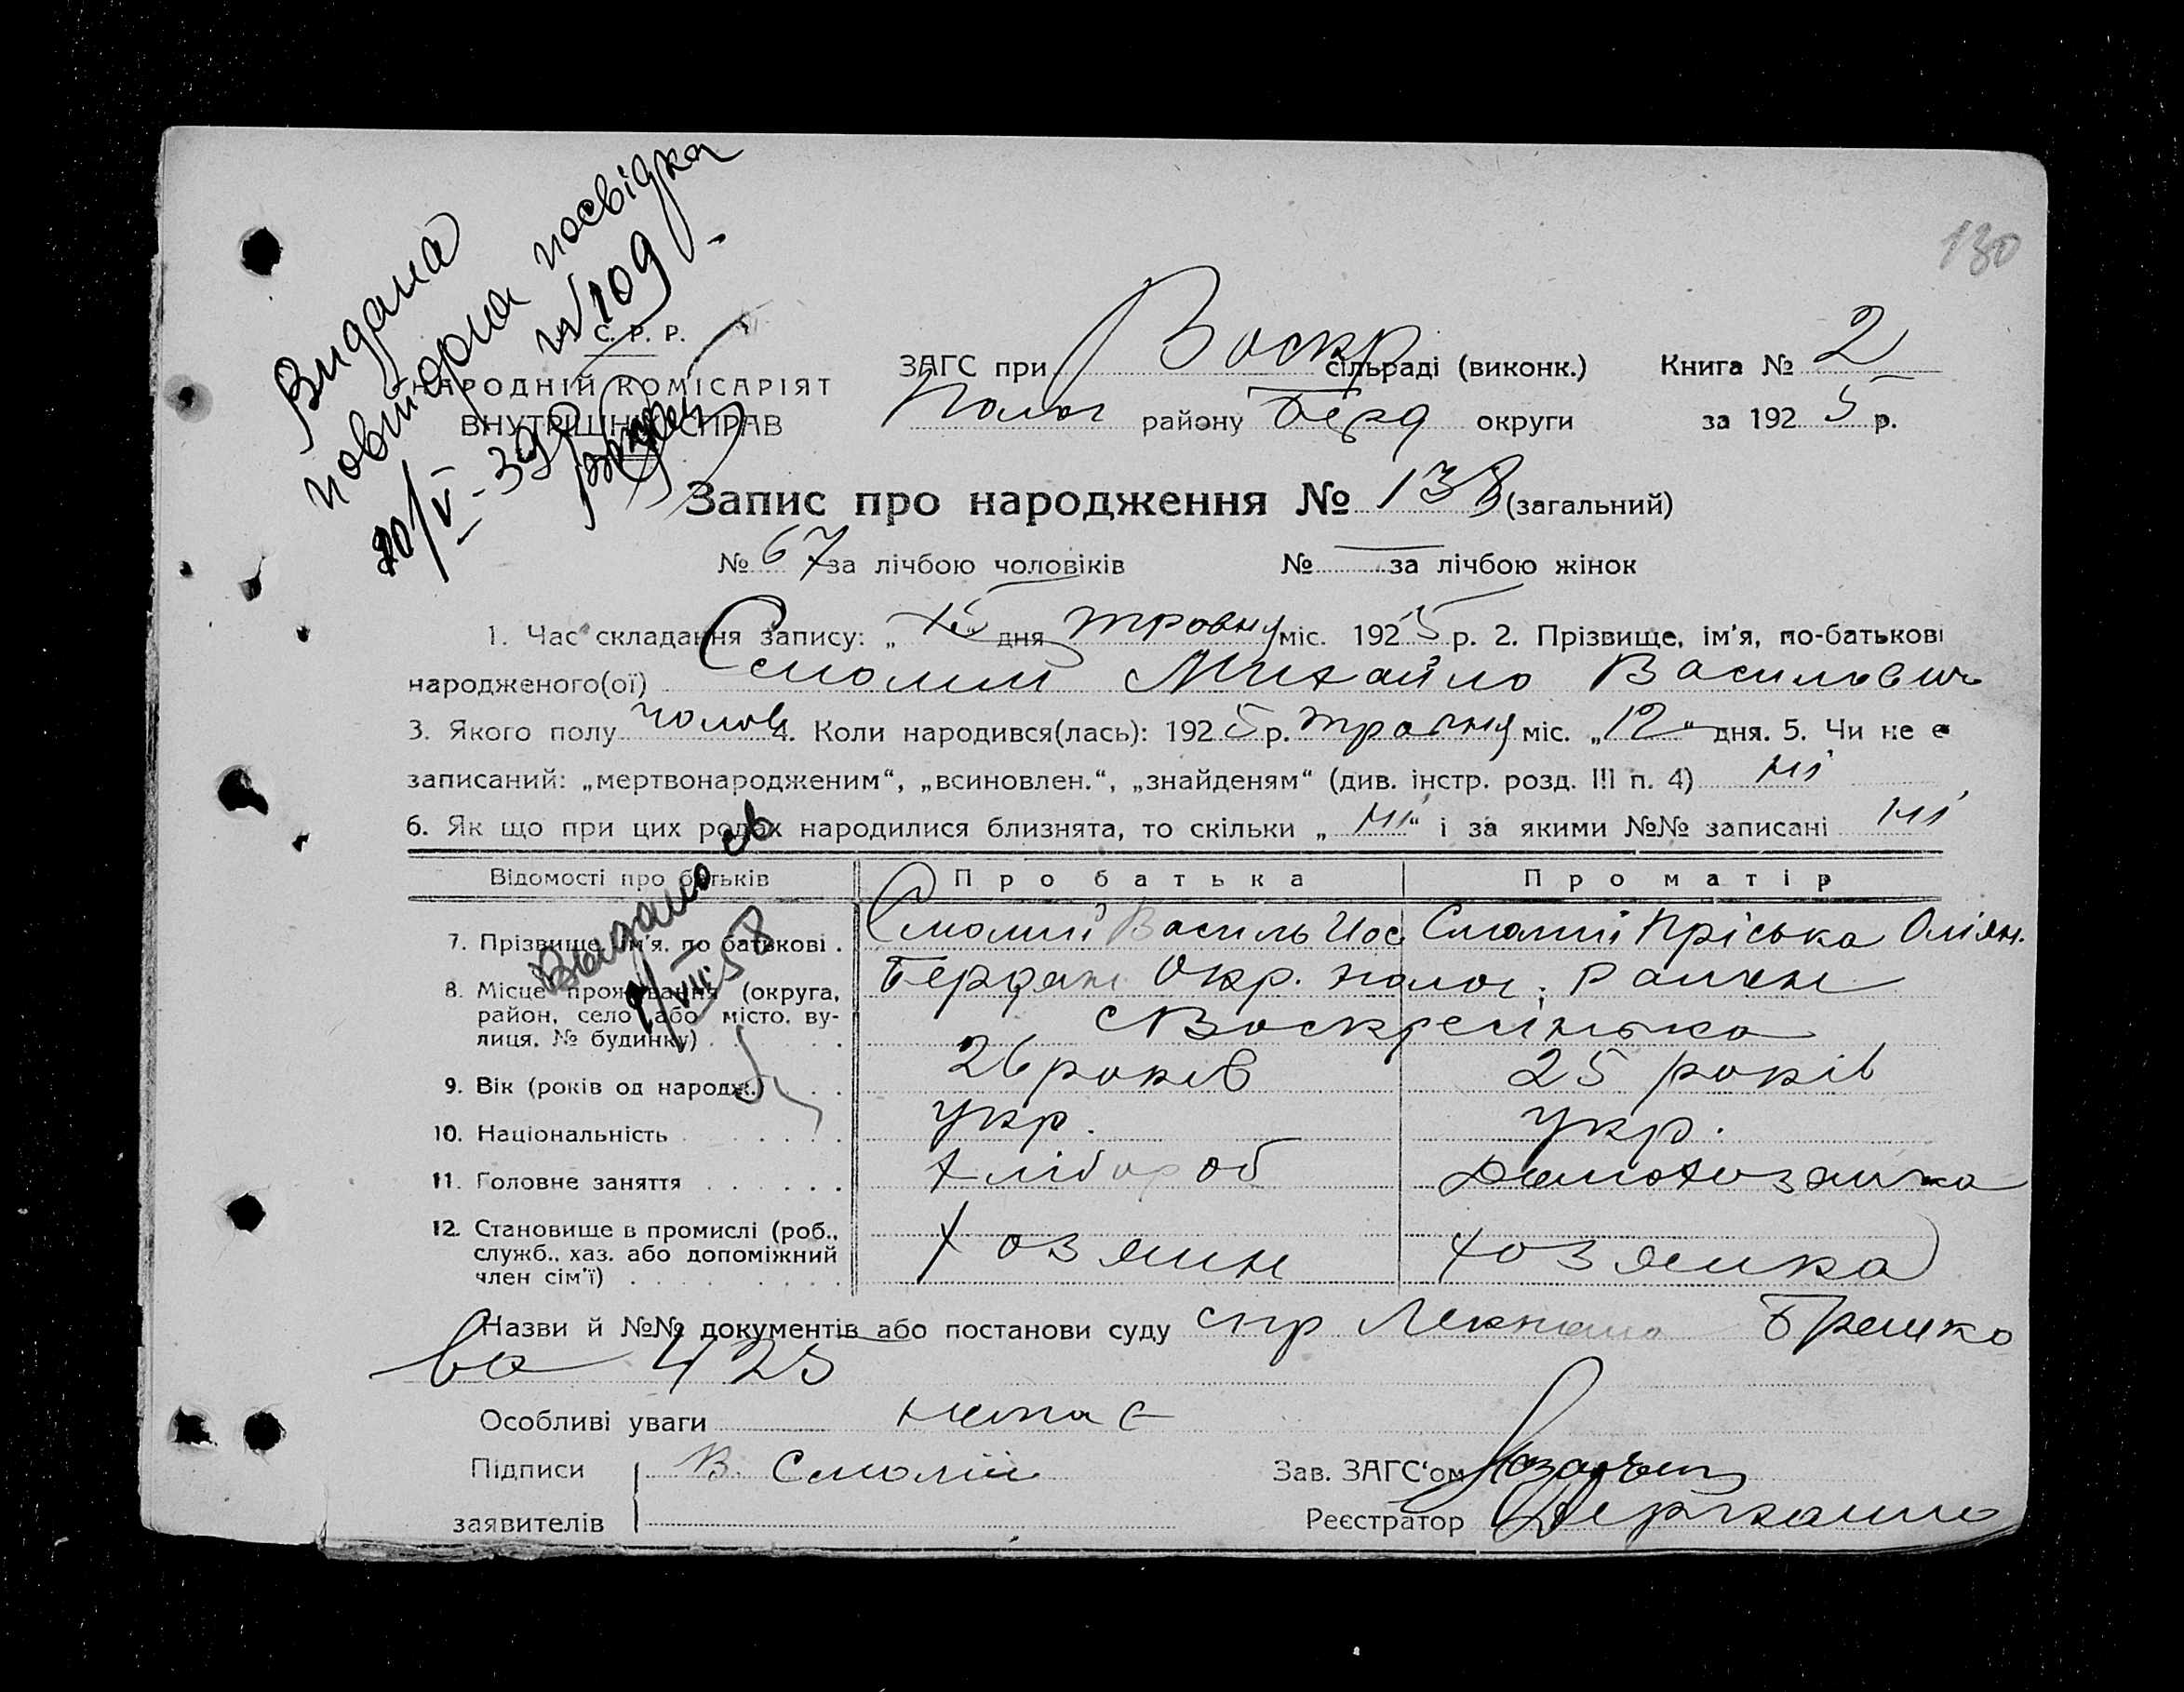 130
Видана
повторна посвідка
№ 109
20/V-39р
С. Р. Р.
НАРОДНІЙ КОМІСАРІЯТ
ВНУТРІШНІХ СПРАВ
ЗАГС при Воскр сільраді (виконк.) Книга № 2
Полог району Берд округи за 1925 р.
Запис про народження № 138 (загальний)
№ 67 за лічбою чоловіків № — за лічбою жінок
1. Час складання запису: „ “ дня травня міс. 1925 р. 2. Прізвище, ім'я, по-батькові
народженого(ої) Смолий Михайло Васильович
3. Якого полу чолов 4. Коли народився(лась): 1925 р. травня міс. „12“ дня. 5. Чи не є
записаний: „мертвонародженим“, „всиновлен.“, „знайденям“ (див. інстр. розд. III п. 4) ні
6. Як що при цих родах народилися близнята, то скільки „ні“ і за якими №№ записані ні
Відомості про батьків Про батька Про матір
7. Прізвище, ім'я, по батькові . Смолий Василь Иос Смолий Пріська Оліян.
8. Місце прожування (округа, район, село або місто, вулиця, № будинку) Бердян Окр. полог. Район
с Воскресінька
9. Вік (років од народж.) 26 років 25 років
10. Національність укр. укр.
11. Головне заняття хлібороб Домохозяйка
12. Становище в промислі (роб., служб., хаз. або допоміжний член сім'ї) хозяин хозяйка
Видано св
9/VIII 58
Назви й №№ документів або постанови суду спр Лекпома Брешко
ва 425
Особливі уваги немає
Підписи заявителів В. Смолій
Зав. ЗАГС'ом
Реєстратор